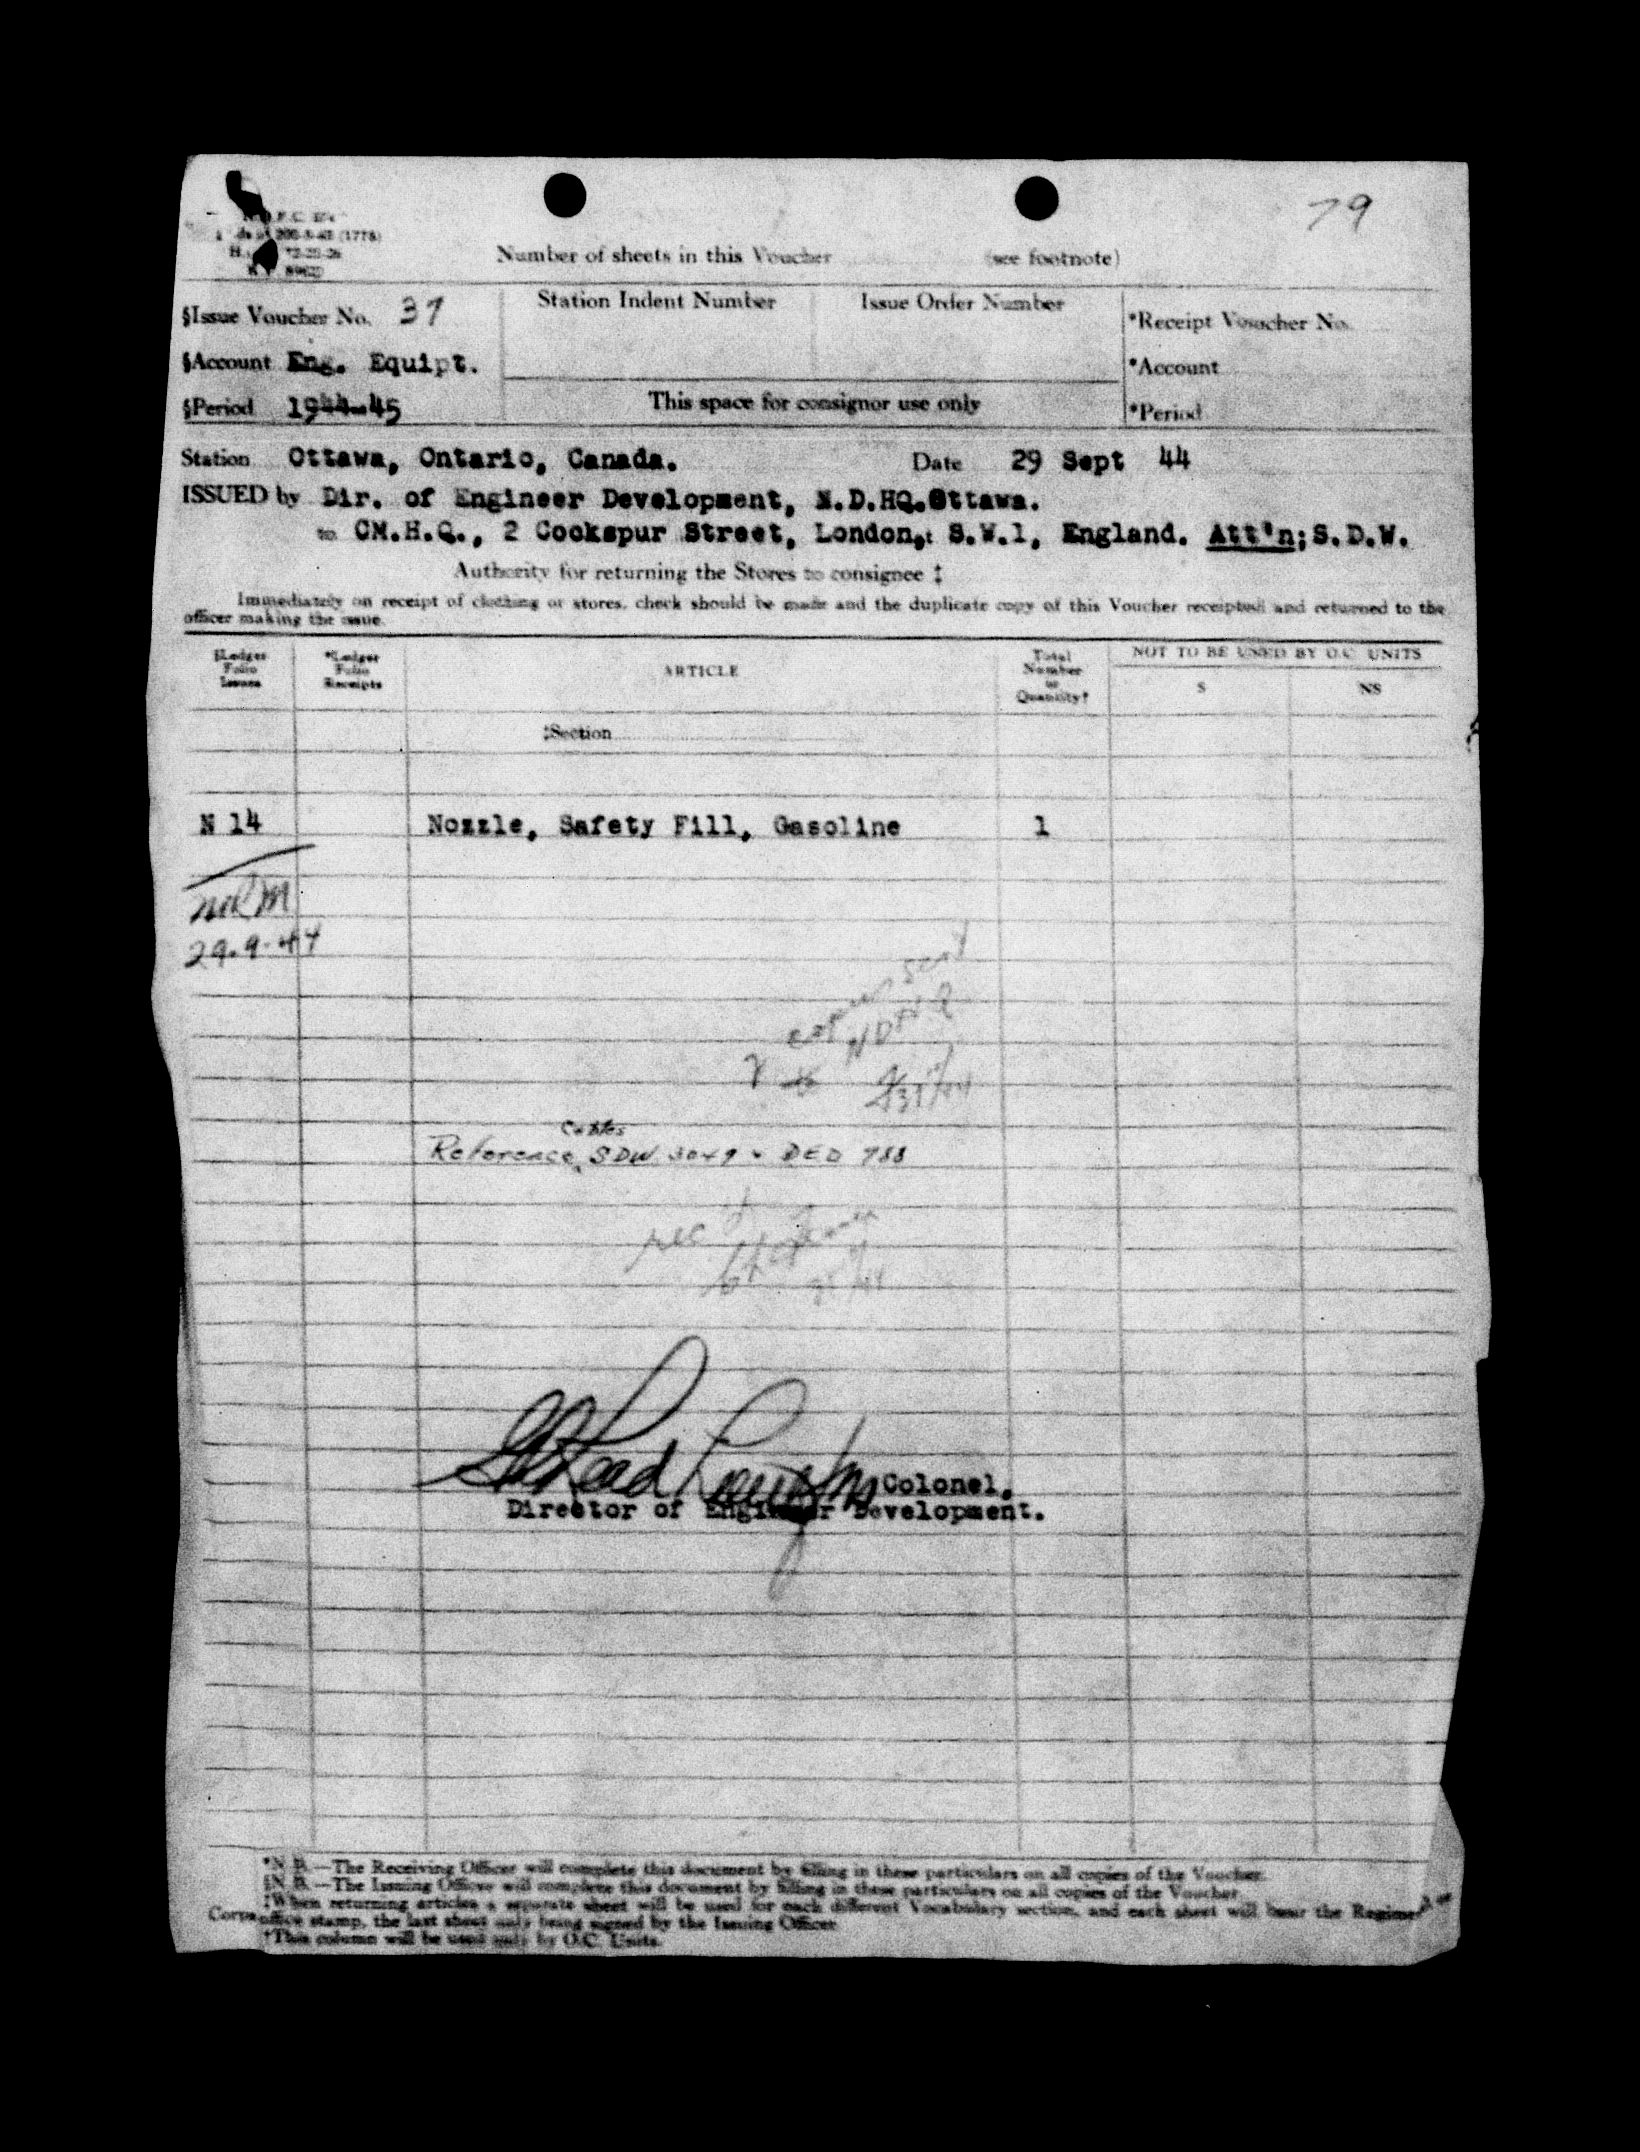 79
Number of sheets in this Voucher (see footnote)
§Issue Voucher No. 37
Station Indent Number
Issue Order Number
*Receipt Voucher No.
§Account Eng. Equipt.
*Account
§Period 1944-45
This space for consignor use only
*Period
Station Ottawa, Ontario, Canada. Date 29 Sept 44
ISSUED by Dir. of Engineer Development, N.D.HQ.Ottawa.
to CM.H.Q., 2 Cockspur Street, London, S.W.1, England. Att'n;S.D.W.
Authority for returning the Stores to consignee ‡
Immediately on receipt of clothing or stores, check should be made and the duplicate copy of this Voucher receipted and returned to the
officer making the issue.
§Ledger Folio Issues
*Ledger Folio Receipts
ARTICLE
Total Number or Quantity†
NOT TO BE USED BY O.C. UNITS
S
NS
‡Section
N 14 Nozzle, Safety Fill, Gasoline 1
29.9.44
sent
NDHQ
Cables
Reference SDW 3049 & DED 788
rec'd
Colonel,
Director of Engineer Development.
*N.B.—The Receiving Officer will complete this document by filling in these particulars on all copies of the Voucher.
§N.B.—The Issuing Officer will complete this document by filling in these particulars on all copies of the Voucher.
‡When returning articles a separate sheet will be used for each different Vocabulary section, and each sheet will bear the
Corps office stamp, the last sheet only being signed by the Issuing Officer.
†This column will be used only by O.C. Units.